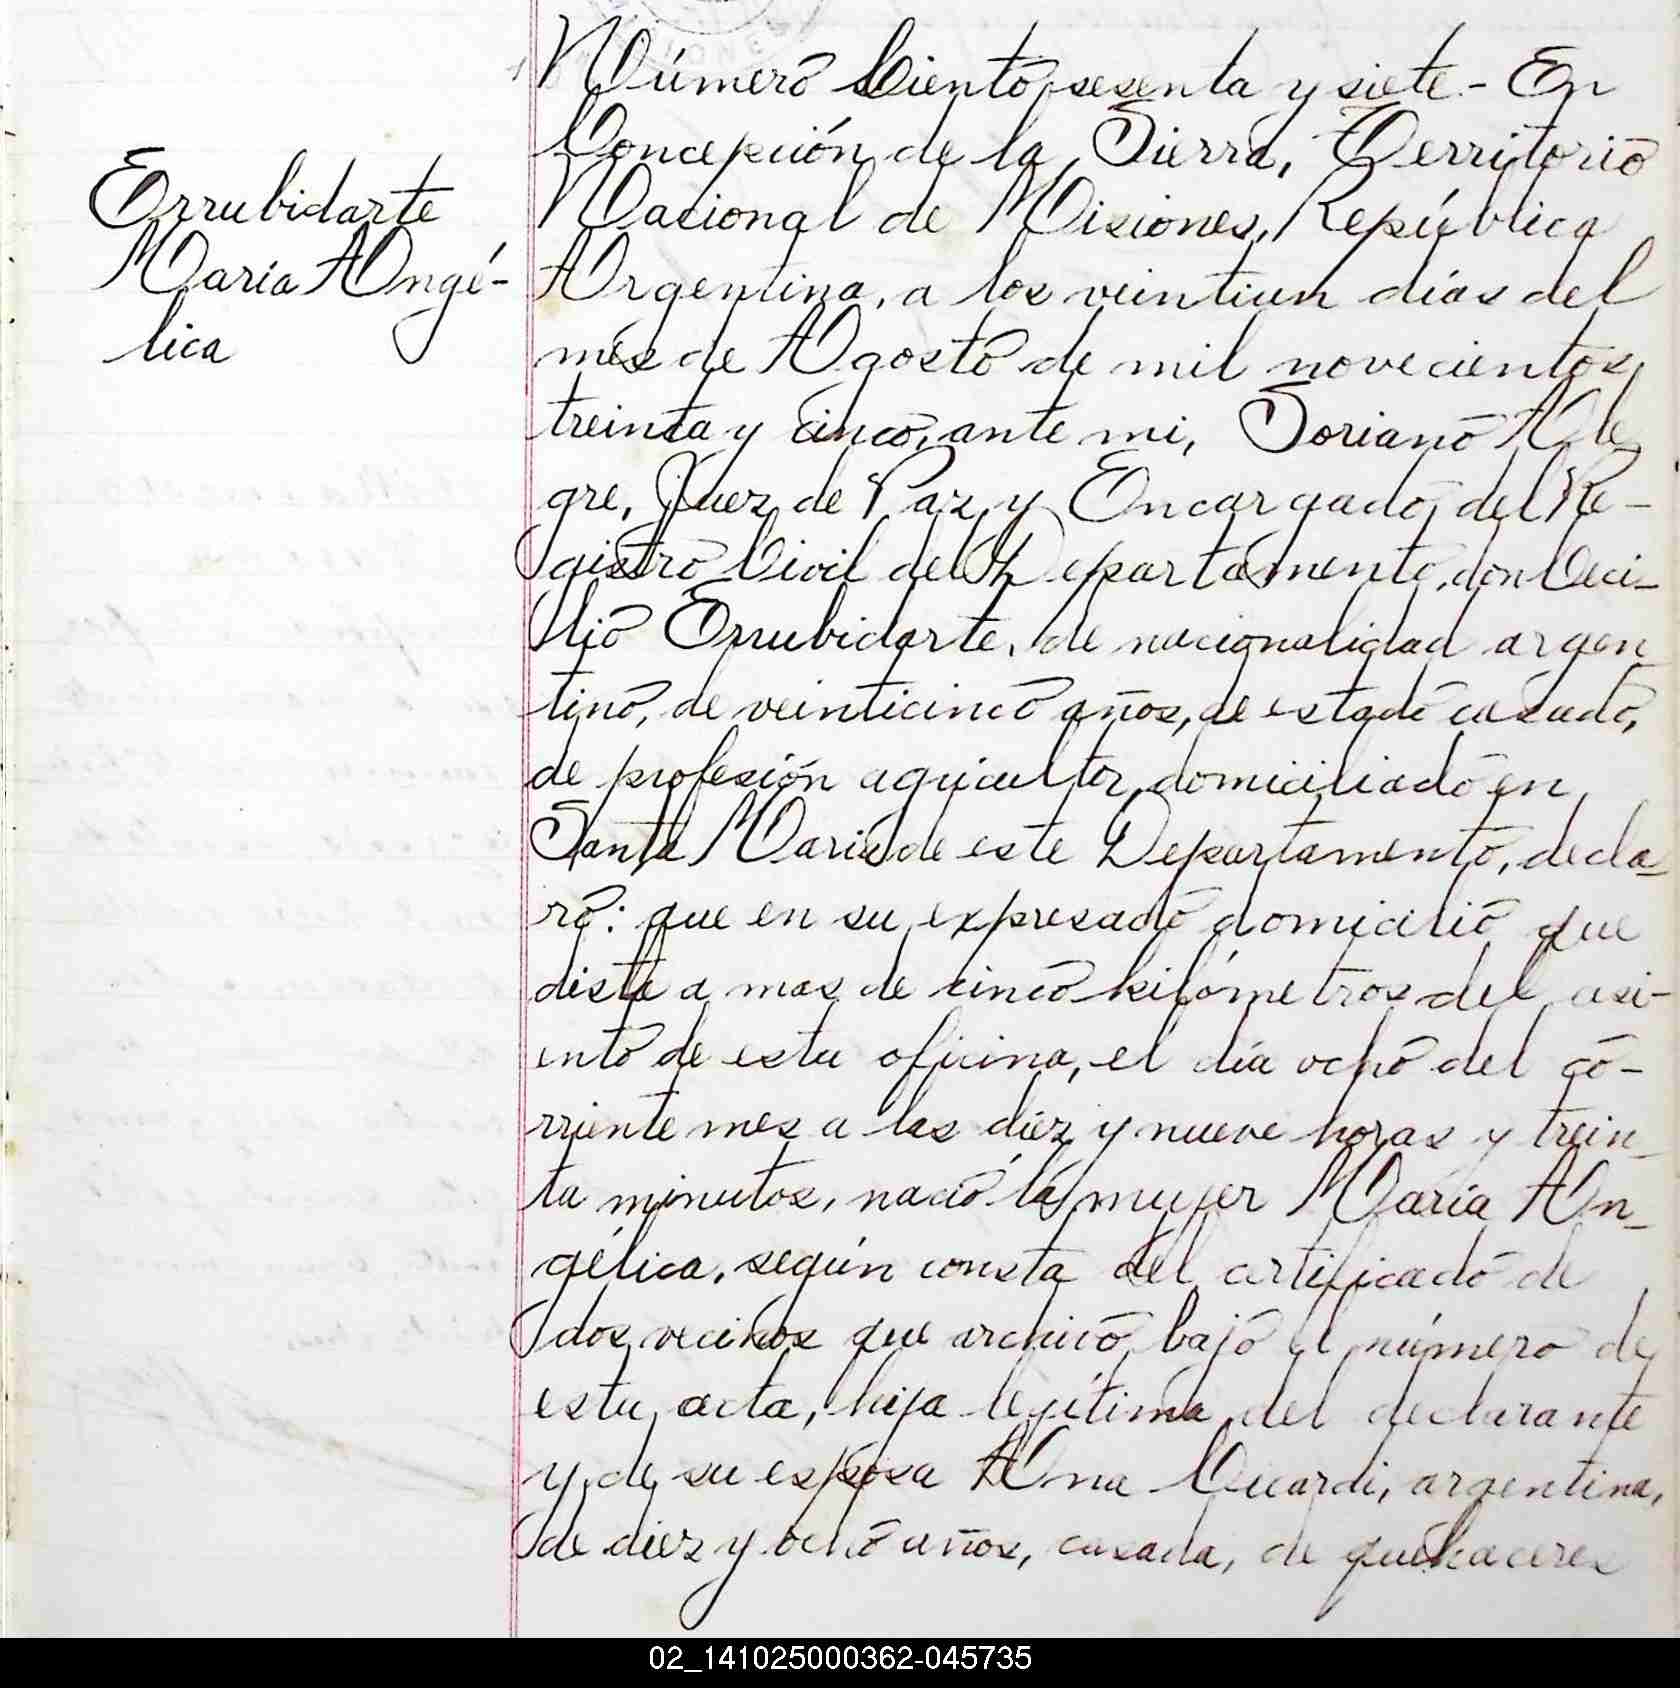 Errubidarte
María Angé-
lica
Número Ciento sesenta y siete.- En
Concepción de la Sierra, Territorio
Nacional de Misiones, República
Argentina, a los veintiun días del
mes de Agosto de mil novecientos
treinta y cinco, ante mi, Soriano Ale
gre, Juez de Paz y Encargado del Re-
gistro Civil del Departamento, don Ceci-
lio Errubidarte, de nacionalidad argen
tino, de veinticinco años, de estado casado,
de profesión agricultor, domiciliado en
Santa María de este Departamento, decla-
ró: que en su expresado domicilio que
dista a mas de cinco kilómetros del asi-
ento de esta oficina, el día ocho del co-
rriente mes a las diez y nueve horas y trein-
ta minutos, nació la mujer María An-
gélica, según consta del certificado de
dos vecinos que archivo bajo el número de
esta acta, hija legítima del declarante
y de su esposa Ana Cicardi, argentina,
de diez y ocho años, casada, de quehaceres
02_141025000362-045735